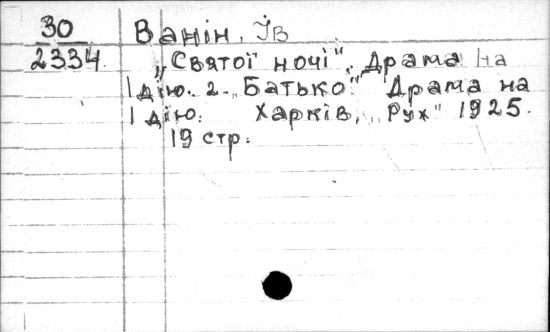 30 Ванін, Ів
2334 „Святої ночі". Драма на
1 дію. 2. „Батько". Драма на
1 дію. Харків, „Рух" 1925.
19 стр.